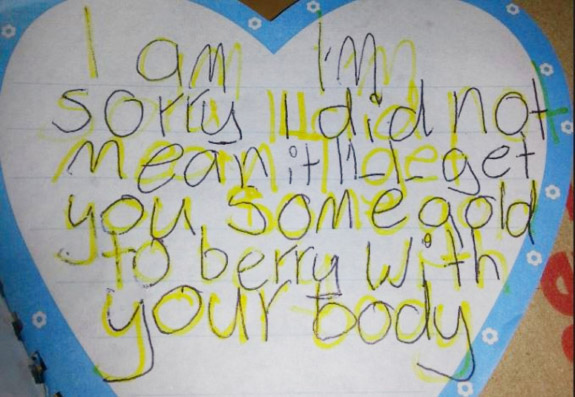 I am I'm
sorry I did not
mean it I'll get
you some gold
to berry with
your body